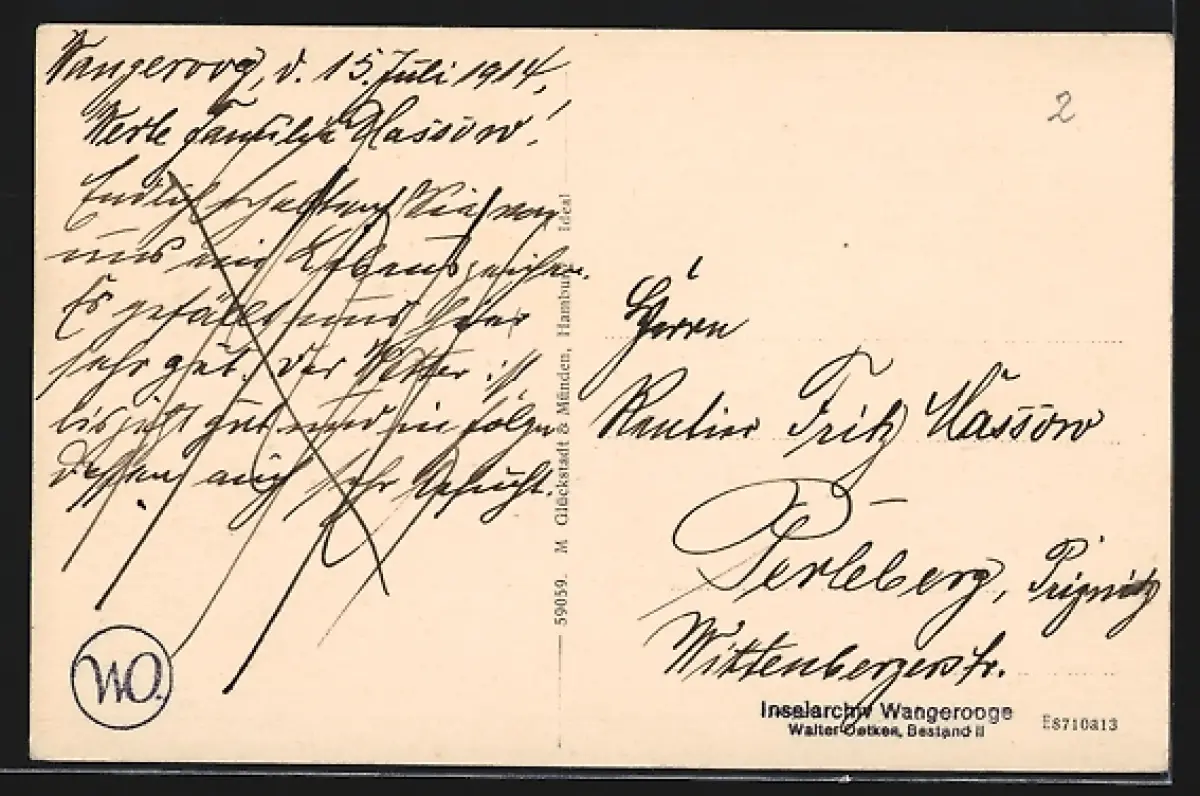 Wangeroog, d. 15. Juli 1914,
Werte Familie Massow!
Endlich erhalten Sie von
uns ein Lebenszeichen.
Es gefällt uns hier
sehr gut. Das Wetter ist
bis jetzt gut und in folge
dessen auch sehr besucht.
2
Herrn
Rentier Fritz Massow
Perleberg, Prignitz
Wittenbergerstr.
59059. M Glückstadt & Münden, Hamburg Ideal
WO.
Inselarchiv Wangerooge
Walter Oetken, Bestand II
E8710a13